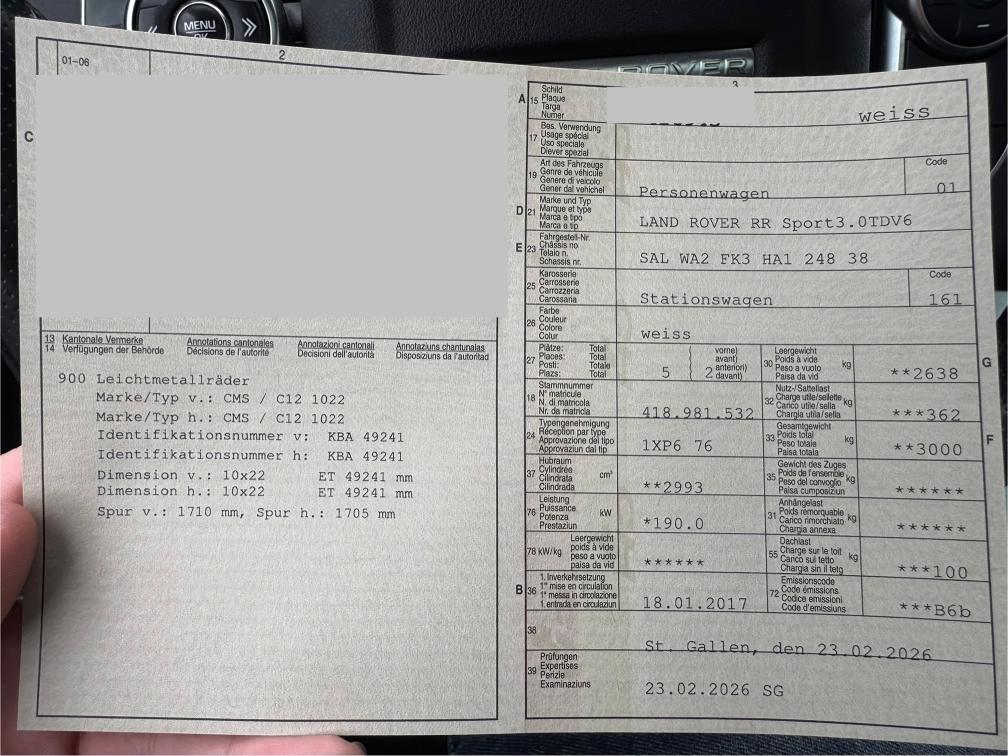 MENU
OK
ROVER
01-06
2
3
C
A 15 Schild
Plaque
Targa
Numer
weiss
17 Bes. Verwendung
Usage spécial
Uso speciale
Diever spezial
19 Art des Fahrzeugs
Genre de véhicule
Genere di veicolo
Gener dal vehichel
Personenwagen
Code
01
D 21 Marke und Typ
Marque et type
Marca e tipo
Marca e tip
LAND ROVER RR Sport3.0TDV6
E 23 Fahrgestell-Nr.
Châssis no
Telaio n.
Schassis nr.
SAL WA2 FK3 HA1 248 38
25 Karosserie
Carrosserie
Carrozzeria
Carossaria
Stationswagen
Code
161
26 Farbe
Couleur
Colore
Colur
weiss
27 Plätze: Total
Places: Total
Posti: Totale
Plazs: Total
5
2
vorne)
avant)
anteriori)
davant)
30 Leergewicht
Poids à vide
Peso a vuoto
Paisa da vid
kg
**2638
G
18 Stammnummer
N° matricule
N. di matricola
Nr. da matricla
418.981.532
32 Nutz-/Sattellast
Charge utile/sellette
Carico utile/sella
Chargia utila/sella
kg
***362
24 Typengenehmigung
Réception par type
Approvazione del tipo
Approvaziun dal tip
1XP6 76
33 Gesamtgewicht
Poids total
Peso totale
Paisa totala
kg
**3000
F
37 Hubraum
Cylindrée
Cilindrata
Cilindrada
cm³
**2993
35 Gewicht des Zuges
Poids de l'ensemble
Peso del convoglio
Paisa cumposiziun
kg
******
76 Leistung
Puissance
Potenza
Prestaziun
kW
*190.0
31 Anhängelast
Poids remorquable
Carico rimorchiato
Chargia annexa
kg
******
78 kW/kg Leergewicht
poids à vide
peso a vuoto
paisa da vid
******
55 Dachlast
Charge sur le toit
Carico sul tetto
Chargia sin il tetg
kg
***100
B 36 1. Inverkehrsetzung
1re mise en circulation
1a messa in circolazione
1. entrada en circulaziun
18.01.2017
72 Emissionscode
Code émissions
Codice emissioni
Code d'emissiuns
***B6b
38
St. Gallen, den 23.02.2026
39 Prüfungen
Expertises
Perizie
Examinaziuns
23.02.2026 SG
13 Kantonale Vermerke Annotations cantonales Annotazioni cantonali Annotaziuns chantunalas
14 Verfügungen der Behörde Décisions de l'autorité Decisioni dell'autorità Disposiziuns da l'autoritad
900 Leichtmetallräder
Marke/Typ v.: CMS / C12 1022
Marke/Typ h.: CMS / C12 1022
Identifikationsnummer v: KBA 49241
Identifikationsnummer h: KBA 49241
Dimension v.: 10x22 ET 49241 mm
Dimension h.: 10x22 ET 49241 mm
Spur v.: 1710 mm, Spur h.: 1705 mm